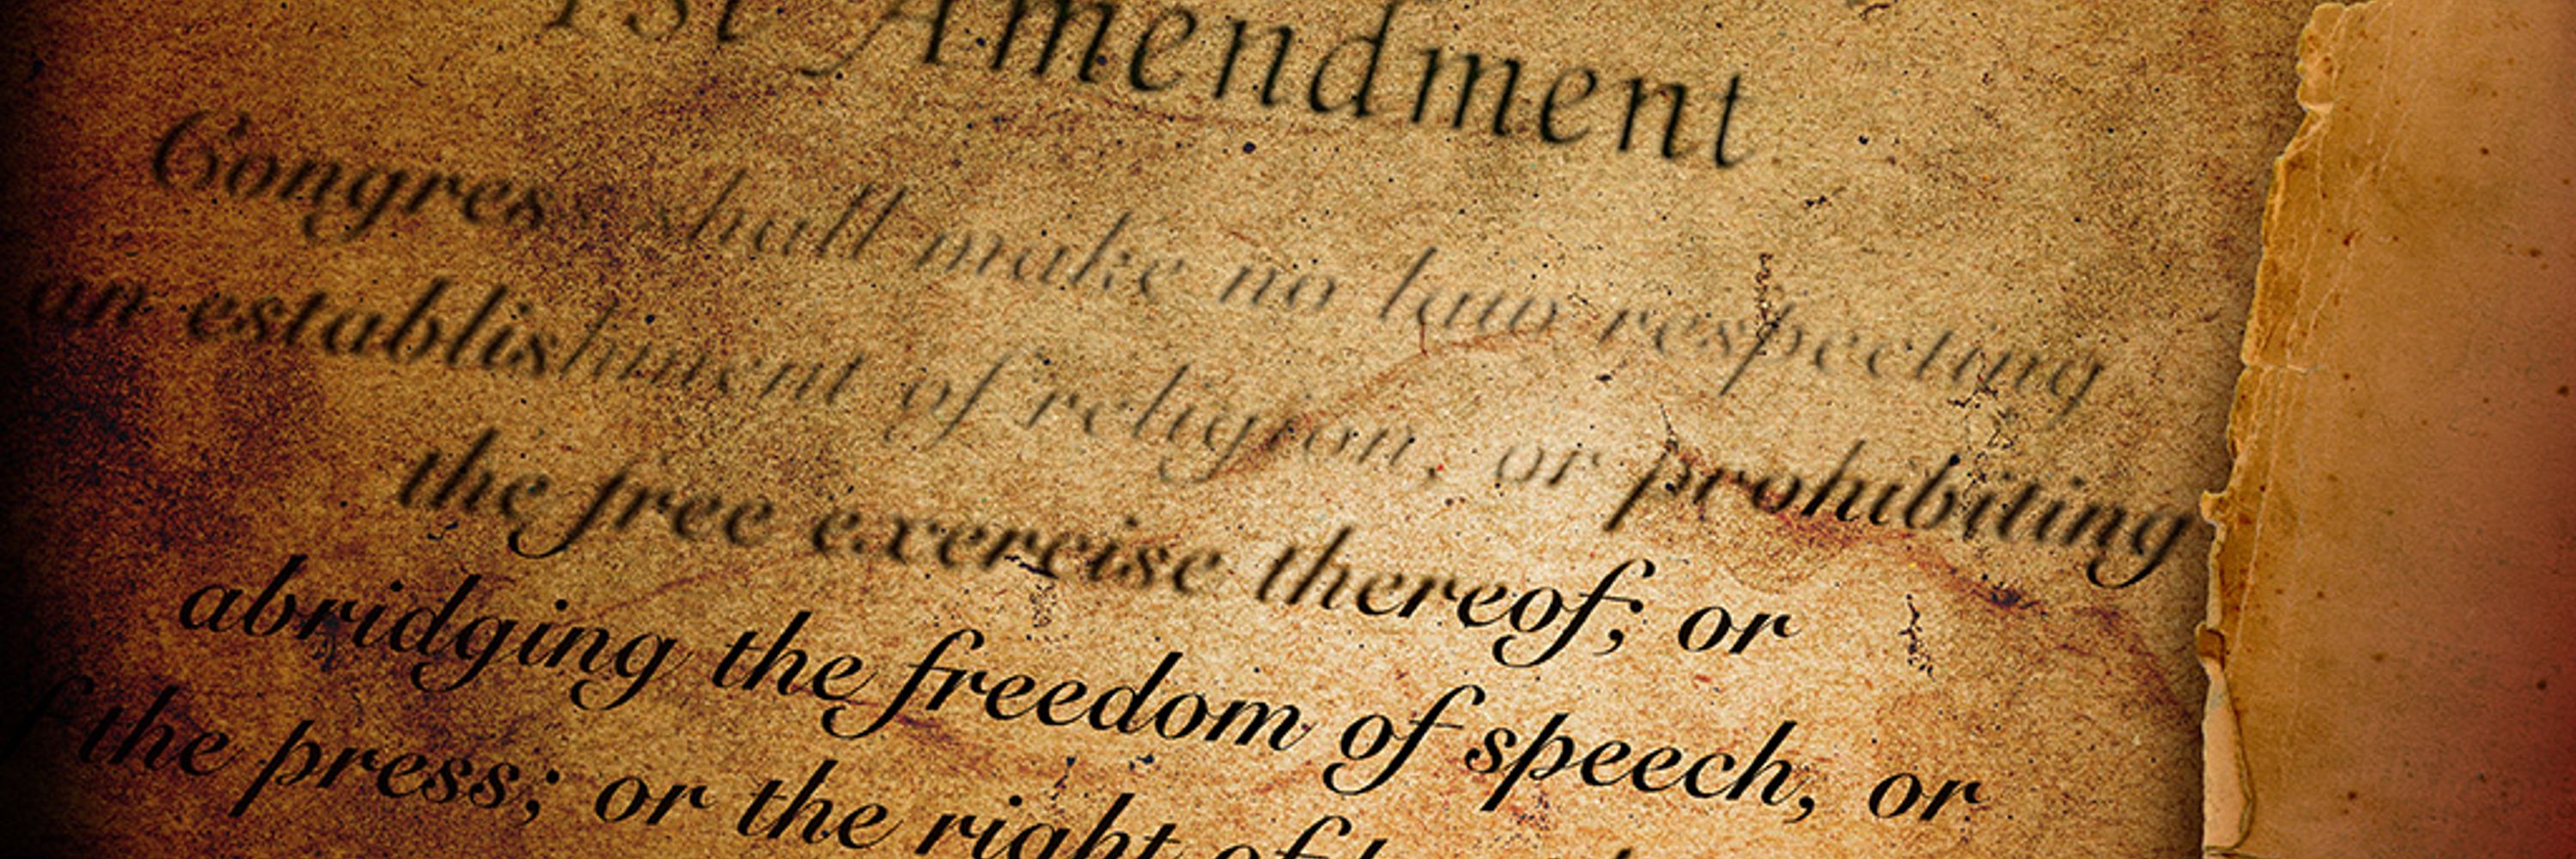 1st Amendment
Congress shall make no law respecting
an establishment of religion, or prohibiting
the free exercise thereof; or
abridging the freedom of speech, or
f the press; or the right of